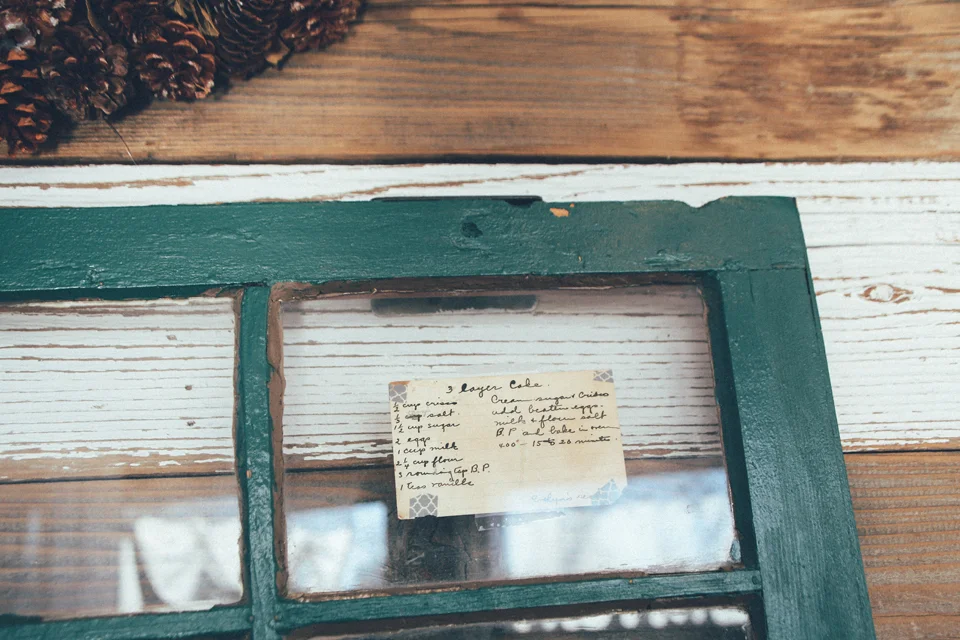 3 Layer Cake.
½ cup crisco
½ cup salt.
1½ cup sugar
2 eggs
1 cup milk
2½ cup flour
3 rounding tsp B.P.
1 teas vanilla
Cream sugar & Crisco
add beaten eggs.
milk & flour salt
B.P. and bake in oven
400° - 15 to 20 minute.